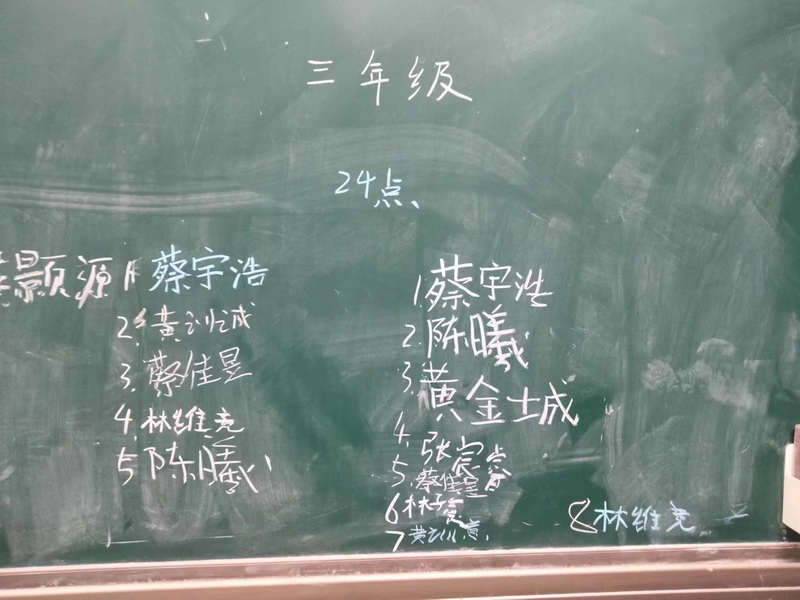 三年级
24点
颢源
1 蔡宇浩
2. 黄训诚
3. 蔡佳昱
4. 林维竞
5 陈曦
1. 蔡宇浩
2. 陈曦
3. 黄金城
4. 张宸
5. 蔡佳昱
6 林
7 黄训
8 林维竞